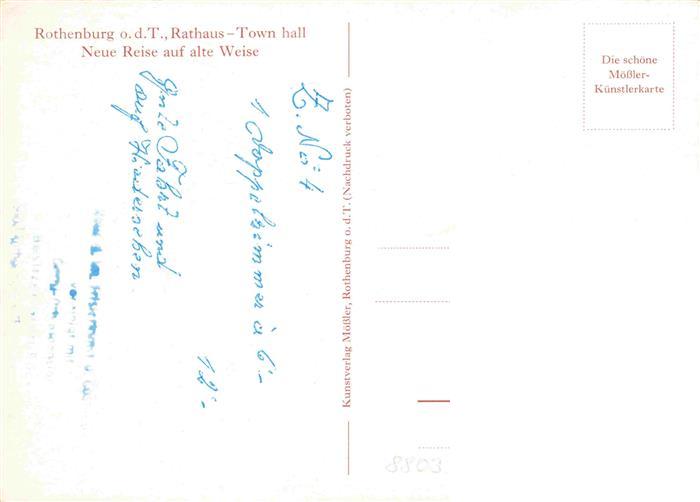 Rothenburg o. d. T., Rathaus – Town hall
Neue Reise auf alte Weise
Die schöne
Mößler-
Künstlerkarte
Kunstverlag Mößler, Rothenburg o. d. T. (Nachdruck verboten)
Z. Nº 4
1 Doppelzimmer à 6.-
12.-
Gute Fahrt und
auf Wiedersehen
8803